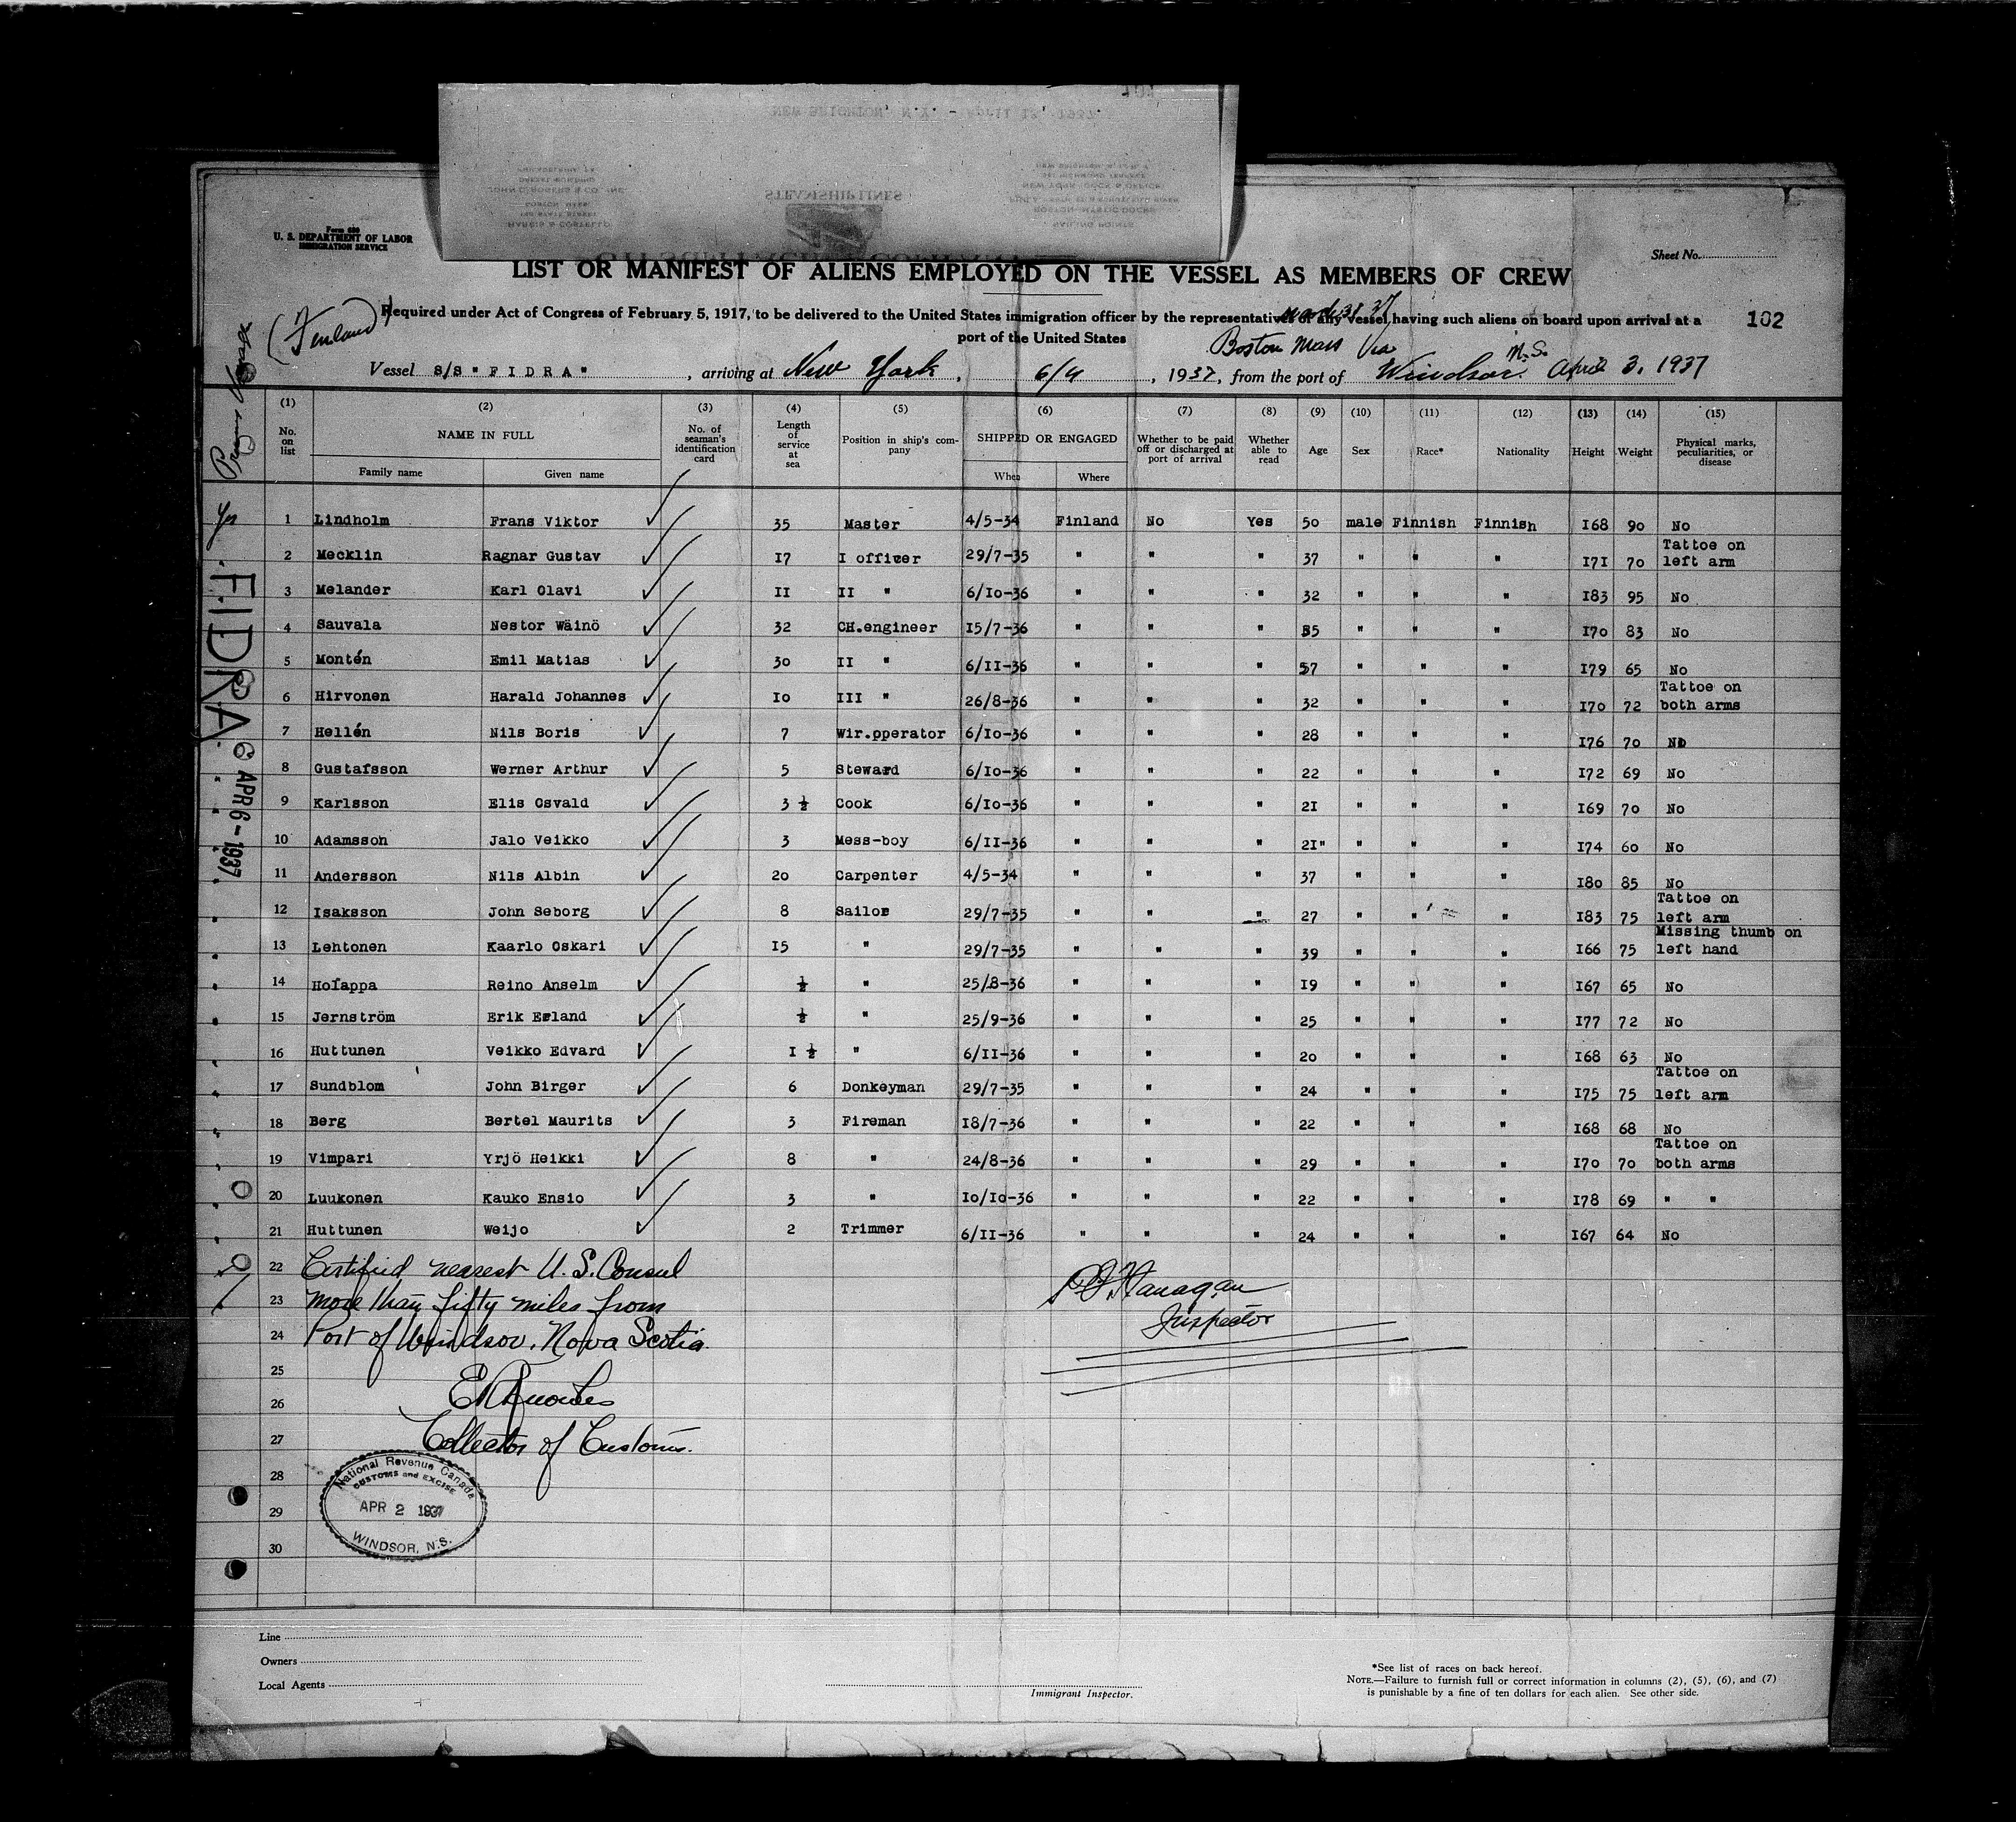 Form 680
U. S. DEPARTMENT OF LABOR
IMMIGRATION SERVICE
Sheet No.
LIST OR MANIFEST OF ALIENS EMPLOYED ON THE VESSEL AS MEMBERS OF CREW
Required under Act of Congress of February 5, 1917, to be delivered to the United States immigration officer by the representatives of any vessel having such aliens on board upon arrival at a
port of the United States
102
(Finland)
Boston Mass Via
Vessel S/S "FIDRA", arriving at New York, 6/4, 1937, from the port of Windsor. N.S. April 3. 1937
(1) (2) (3) (4) (5) (6) (7) (8) (9) (10) (11) (12) (13) (14) (15)
No. on list NAME IN FULL No. of seaman's identification card Length of service at sea Position in ship's company SHIPPED OR ENGAGED Whether to be paid off or discharged at port of arrival Whether able to read Age Sex Race* Nationality Height Weight Physical marks, peculiarities, or disease
Family name Given name When Where
1 Lindholm Frans Viktor 35 Master 4/5-34 Finland No Yes 50 male Finnish Finnish 168 90 No
2 Mecklin Ragnar Gustav 17 I officer 29/7-35 " " " 37 " " " 171 70 Tattoe on left arm
3 Melander Karl Olavi 11 II " 6/10-36 " " " 32 " " " 183 95 No
4 Sauvala Nestor Wäinö 32 CH.engineer 15/7-36 " " " 55 " " " 170 83 No
5 Montén Emil Matias 30 II " 6/11-36 " " " 57 " " " 179 65 No
6 Hirvonen Harald Johannes 10 III " 26/8-36 " " " 32 " " " 170 72 Tattoe on both arms
7 Hellén Nils Boris 7 Wir.operator 6/10-36 " " " 28 " " " 176 70 No
8 Gustafsson Werner Arthur 5 Steward 6/10-36 " " " 22 " " " 172 69 No
9 Karlsson Elis Osvald 3 ½ Cook 6/10-36 " " " 21 " " " 169 70 No
10 Adamsson Jalo Veikko 3 Mess-boy 6/11-36 " " " 21" " " " 174 60 No
11 Andersson Nils Albin 20 Carpenter 4/5-34 " " " 37 " " " 180 85 No
12 Isaksson John Seborg 8 Sailor 29/7-35 " " " 27 " " " 183 75 Tattoe on left arm
13 Lehtonen Kaarlo Oskari 15 " 29/7-35 " " " 39 " " " 166 75 Missing thumb on left hand
14 Hoiappa Reino Anselm ½ " 25/8-36 " " " 19 " " " 167 65 No
15 Jernström Erik Erland ½ " 25/9-36 " " " 25 " " " 177 72 No
16 Huttunen Veikko Edvard 1 ½ " 6/11-36 " " " 20 " " " 168 63 No
17 Sundblom John Birger 6 Donkeyman 29/7-35 " " " 24 " " " 175 75 Tattoe on left arm
18 Berg Bertel Maurits 3 Fireman 18/7-36 " " " 22 " " " 168 68 No
19 Vimpari Yrjö Heikki 8 " 24/8-36 " " " 29 " " " 170 70 Tattoe on both arms
20 Luukonen Kauko Ensio 3 " 10/10-36 " " " 22 " " " 178 69 " "
21 Huttunen Weijo 2 Trimmer 6/11-36 " " " 24 " " " 167 64 No
22 Certified nearest U.S. Consul
23 more than fifty miles from
24 Port of Windsor, Nova Scotia.
Flanagan
Inspector
25
26
27 Collector of Customs.
28
29
30
National Revenue Canada
CUSTOMS and EXCISE
APR 2 1937
WINDSOR, N.S.
FIDRA
APR 6 - 1937
Line
Owners
Local Agents
Immigrant Inspector.
*See list of races on back hereof.
NOTE.—Failure to furnish full or correct information in columns (2), (5), (6), and (7)
is punishable by a fine of ten dollars for each alien. See other side.
NEW BRIGHTON, N.Y. - April 12, 1937
STEAMSHIP LINES